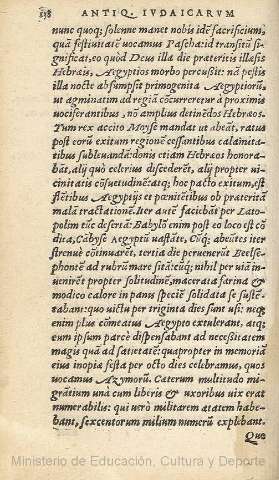 138 ANTIQ. IVDAICARVM
nunc quoq; solenne manet nobis idē sacrificium,
quā festiuitatē uocamus Pascha: id transitū si-
gnificat, eo quòd Deus illa die præteritis illæsis
Hebræis, Aegyptios morbo percußit: nā pestis
illa nocte absumpsit primogenita Aegyptiorū,
ut agminatim ad regiā cōcurreretur à proximis
uociferantibus, nō amplius detinēdos Hebræos.
Tum rex accito Moyse mandat ut abeāt, ratus
post eorū exitum regionē cessantibus calamita-
tibus subleuandā: donis etiam Hebræos honora-
bāt, alij quò celerius discederēt, alij propter ui-
cinitatis cōsuetudinē: atq; hoc pacto exitum, est
flētibus Aegyptijs et pœnitētibus ob præteritā
malā tractationē. Iter autē faciebāt per Lato-
polim tūc desertā: Babylō enim post eo loco est cō
dita, Cābyse Aegyptū uastāte. Cūq; abeūtes iter
strenuè cōtinuarēt, tertia die peruenerūt Beelse-
phontē ad rubrū mare sitā: cūq; nihil per uiā in-
uenirēt propter solitudinē, macerata farina &
modico calore in panis speciē solidata se sustē-
tabant: quo uictu per triginta dies sunt usi: neq;
enim plus cōmeatus Aegypto extulerant, atq;
eum ipsum parcè dispensabant ad necessitatem
magis quā ad satietatē: quapropter in memoriā
eius inopiæ festa per octo dies celebramus, quos
uocamus Azymorū. Cæterum multitudo mi-
grātium unà cum liberis & uxoribus uix erat
numerabilis: qui uerò militarem ætatem habe-
bant, sexcentorum milium numerū explebant.
Quo
Ministerio de Educación, Cultura y Deporte